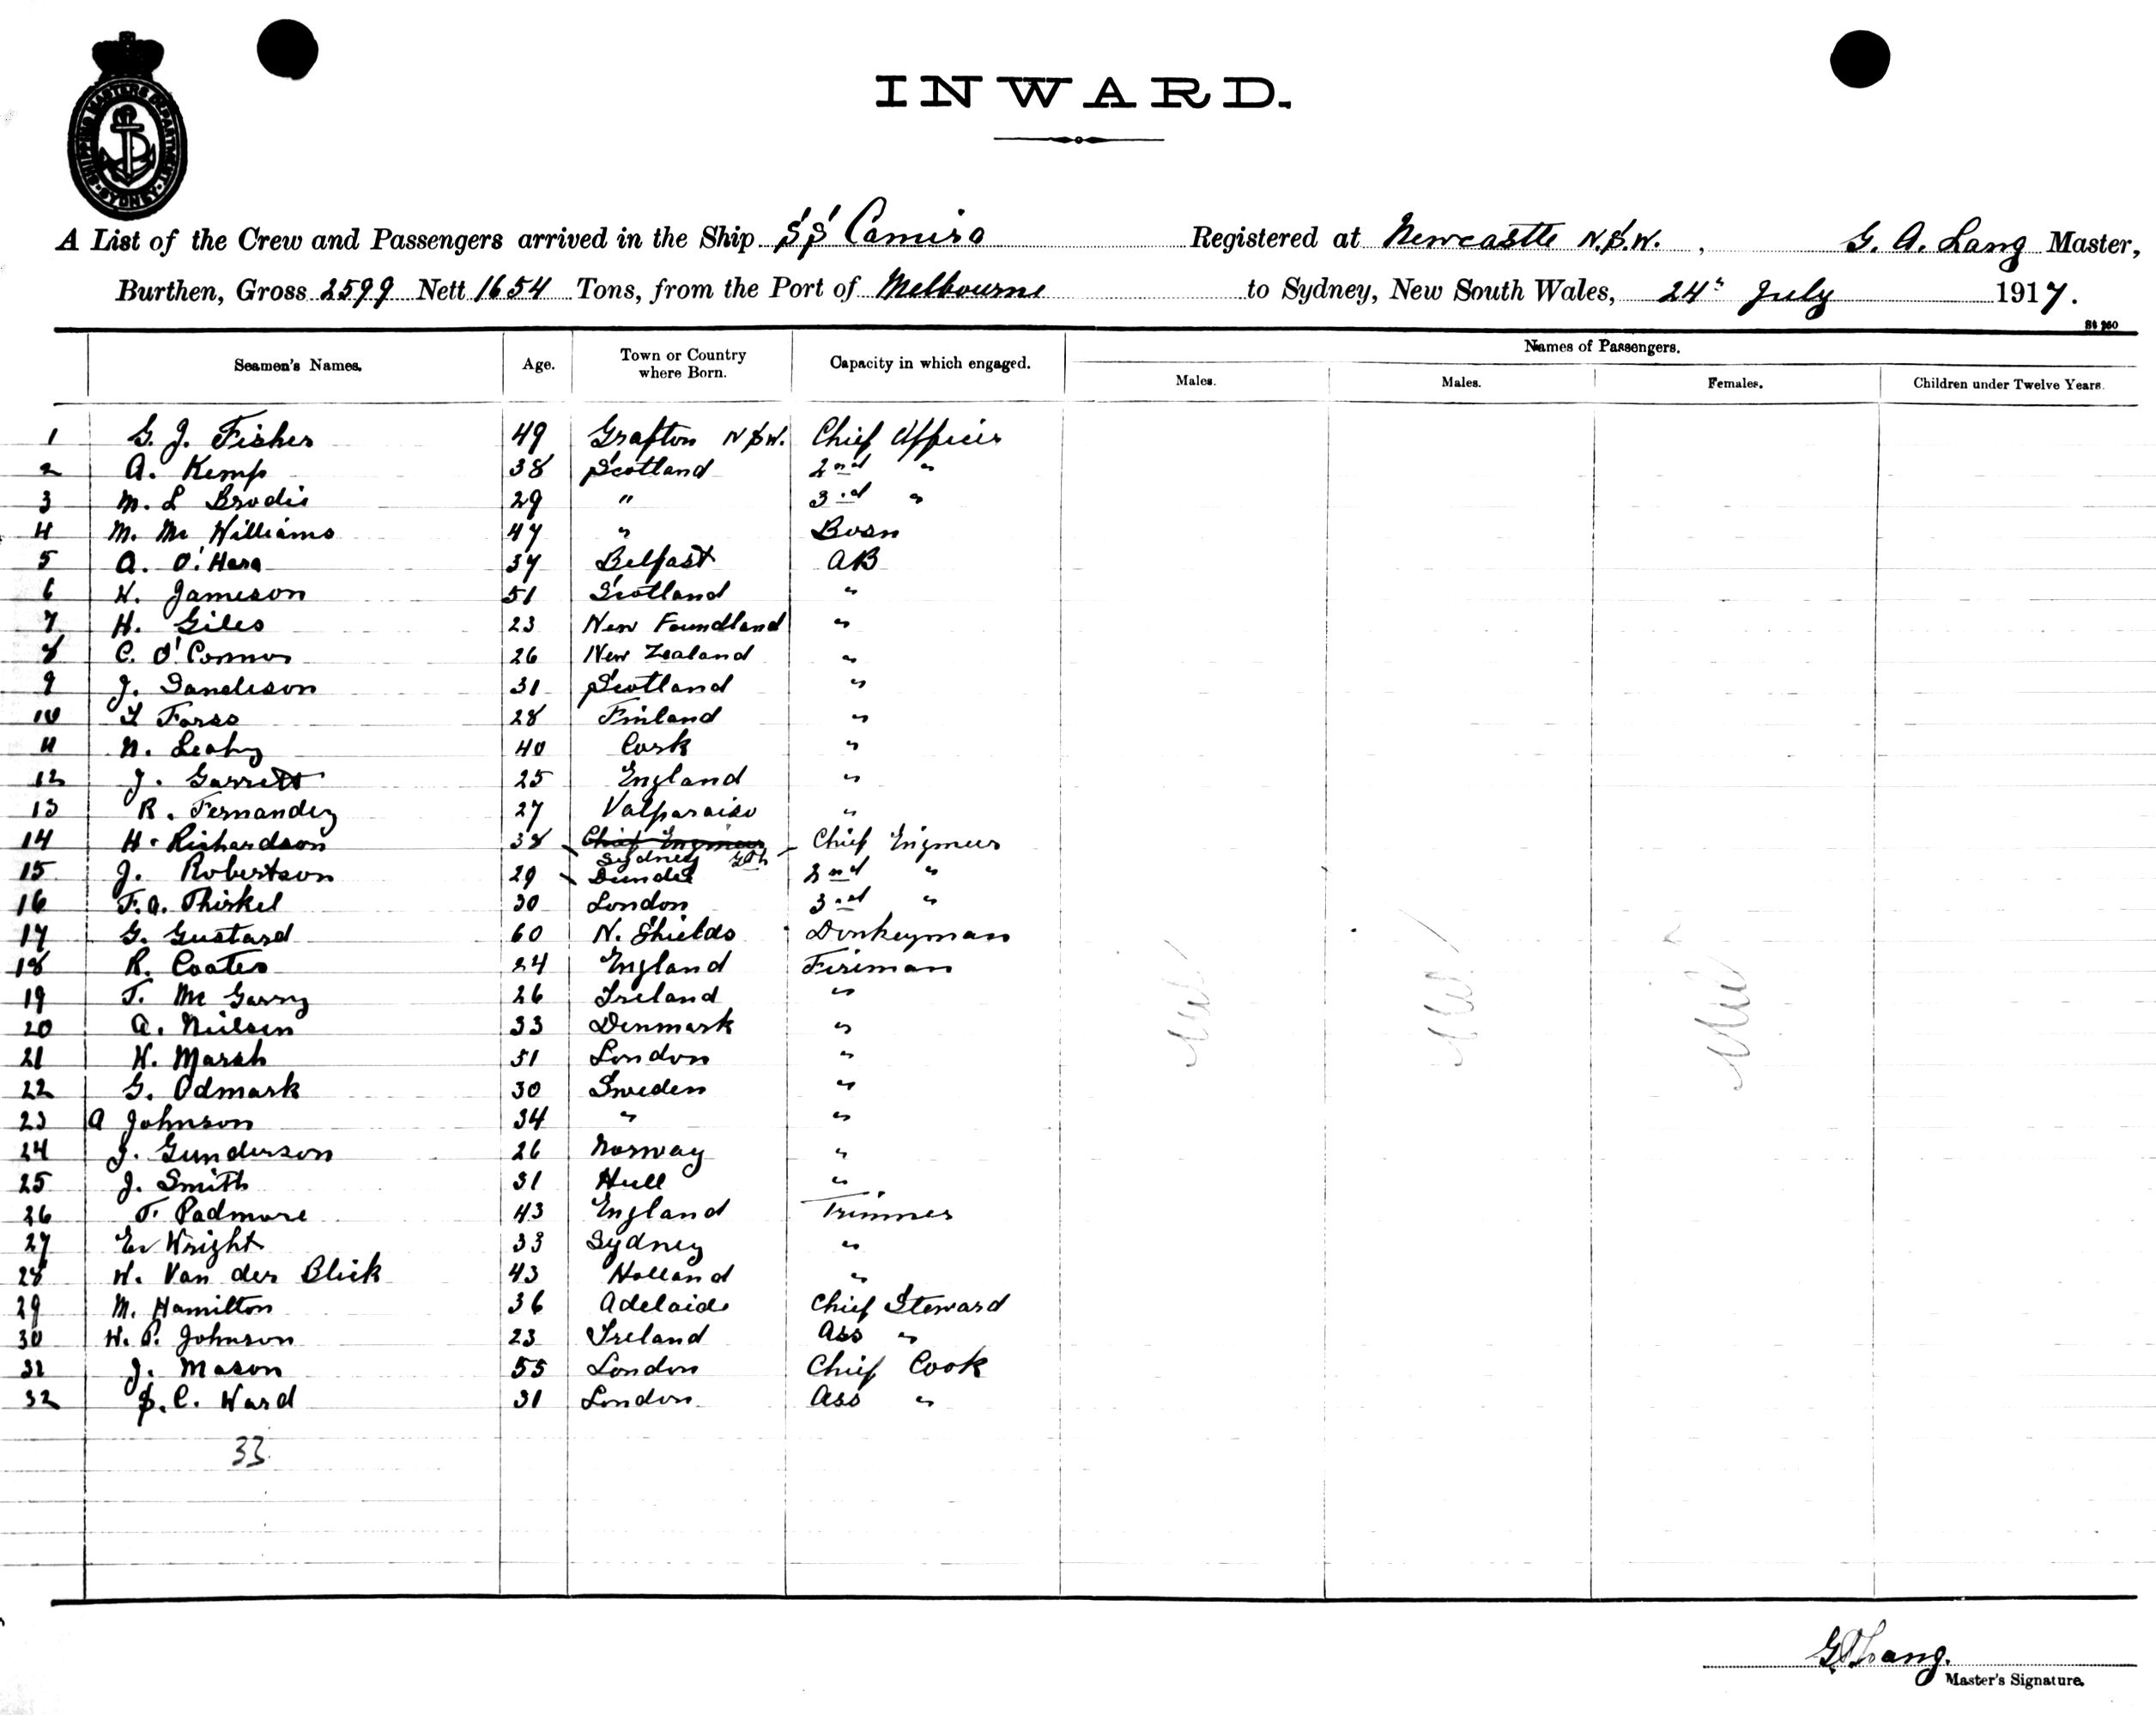 SHIPPING MASTERS DEPARTMENT SYDNEY
INWARD.
A List of the Crew and Passengers arrived in the Ship SS Camira Registered at Newcastle N.S.W., G. A. Lang Master,
Burthen, Gross 2599 Nett 1654 Tons, from the Port of Melbourne to Sydney, New South Wales, 24th July 1917.
St 260
Names of Passengers.
Seamen's Names. Age. Town or Country where Born. Capacity in which engaged. Males. Males. Females. Children under Twelve Years.
1 G. J. Fisher 49 Grafton N.S.W. Chief Officer
2 A. Kemp 38 Scotland 2nd "
3 M. L Brodie 29 " 3rd "
4 M. Mc Williams 47 " Bosn
5 A. O'Hara 37 Belfast AB
6 W. Jameson 51 Scotland "
7 H. Giles 23 New Foundland "
8 C. O'Connor 26 New Zealand "
9 J. Sandison 31 Scotland "
10 Forss 28 Finland "
11 N. Leahy 40 Cork "
12 J. Garrett 25 England "
13 R. Fernandez 27 Valparaiso "
14 H. Richardson 38 Chief Engineer Chief Engineer
Sydney
15 J. Robertson 29 Dundee 2nd "
16 F.A. Thirkel 30 London 3rd "
17 G. Gustard 60 N. Shields Donkeyman
18 R. Coates 24 England Fireman
19 T. Mc Garry 26 Ireland "
20 A. Neilsen 33 Denmark "
21 W. Marsh 51 London "
22 G. Odmark 30 Sweden "
23 A Johnson 34 " "
24 J. Gunderson 26 Norway "
25 J. Smith 31 Hull "
26 T. Padmore 43 England Trimmer
27 E. Wright 33 Sydney "
28 W. Van der Blick 43 Holland "
29 M. Hamilton 36 Adelaide Chief Steward
30 W. P. Johnson 23 Ireland Ass "
31 J. Mason 55 London Chief Cook
32 S. C. Ward 31 London Ass "
33
Nil Nil Nil
G A Lang.
Master's Signature.